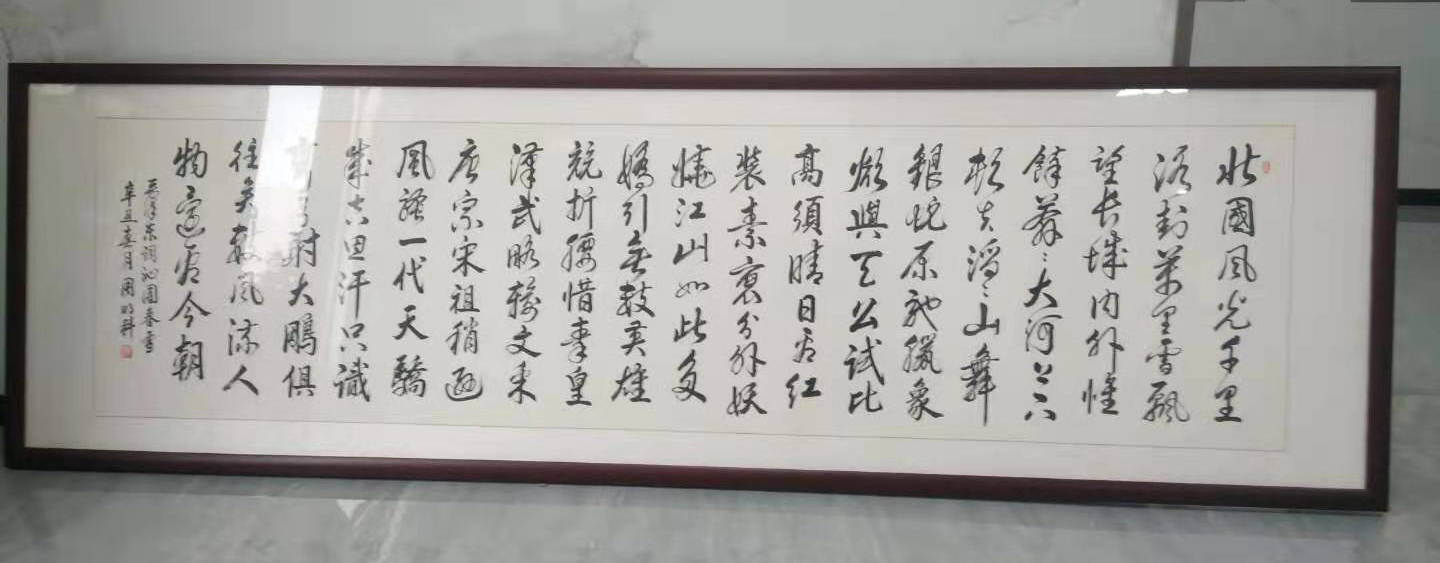 北國風光千里
冰封萬里雪飄
望長城内外惟
餘莽〻大河上下
頓失滔〻山舞
銀蛇原馳臘象
欲與天公試比
高須晴日看紅
裝素裹分外妖
嬈江山如此多
嬌引無數英雄
競折腰惜秦皇
漢武略輸文采
唐宗宋祖稍遜
風騷一代天驕
成吉思汗只識
彎弓射大鵰俱
往矣數風流人
物還看今朝
毛澤東詞沁園春雪
辛丑春月周明科